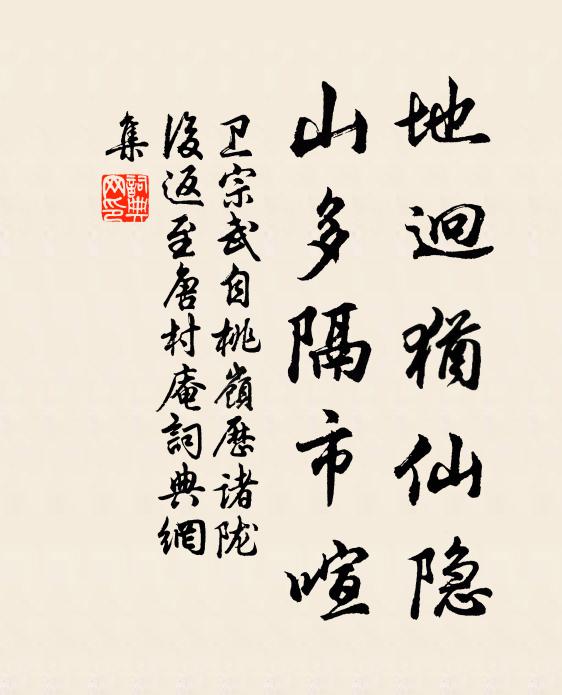 地迥犹仙隐
山多隔市喧
卫宗武自桃嶺歷诸陇
後返至唐村庵詞典網
集
詞典網印